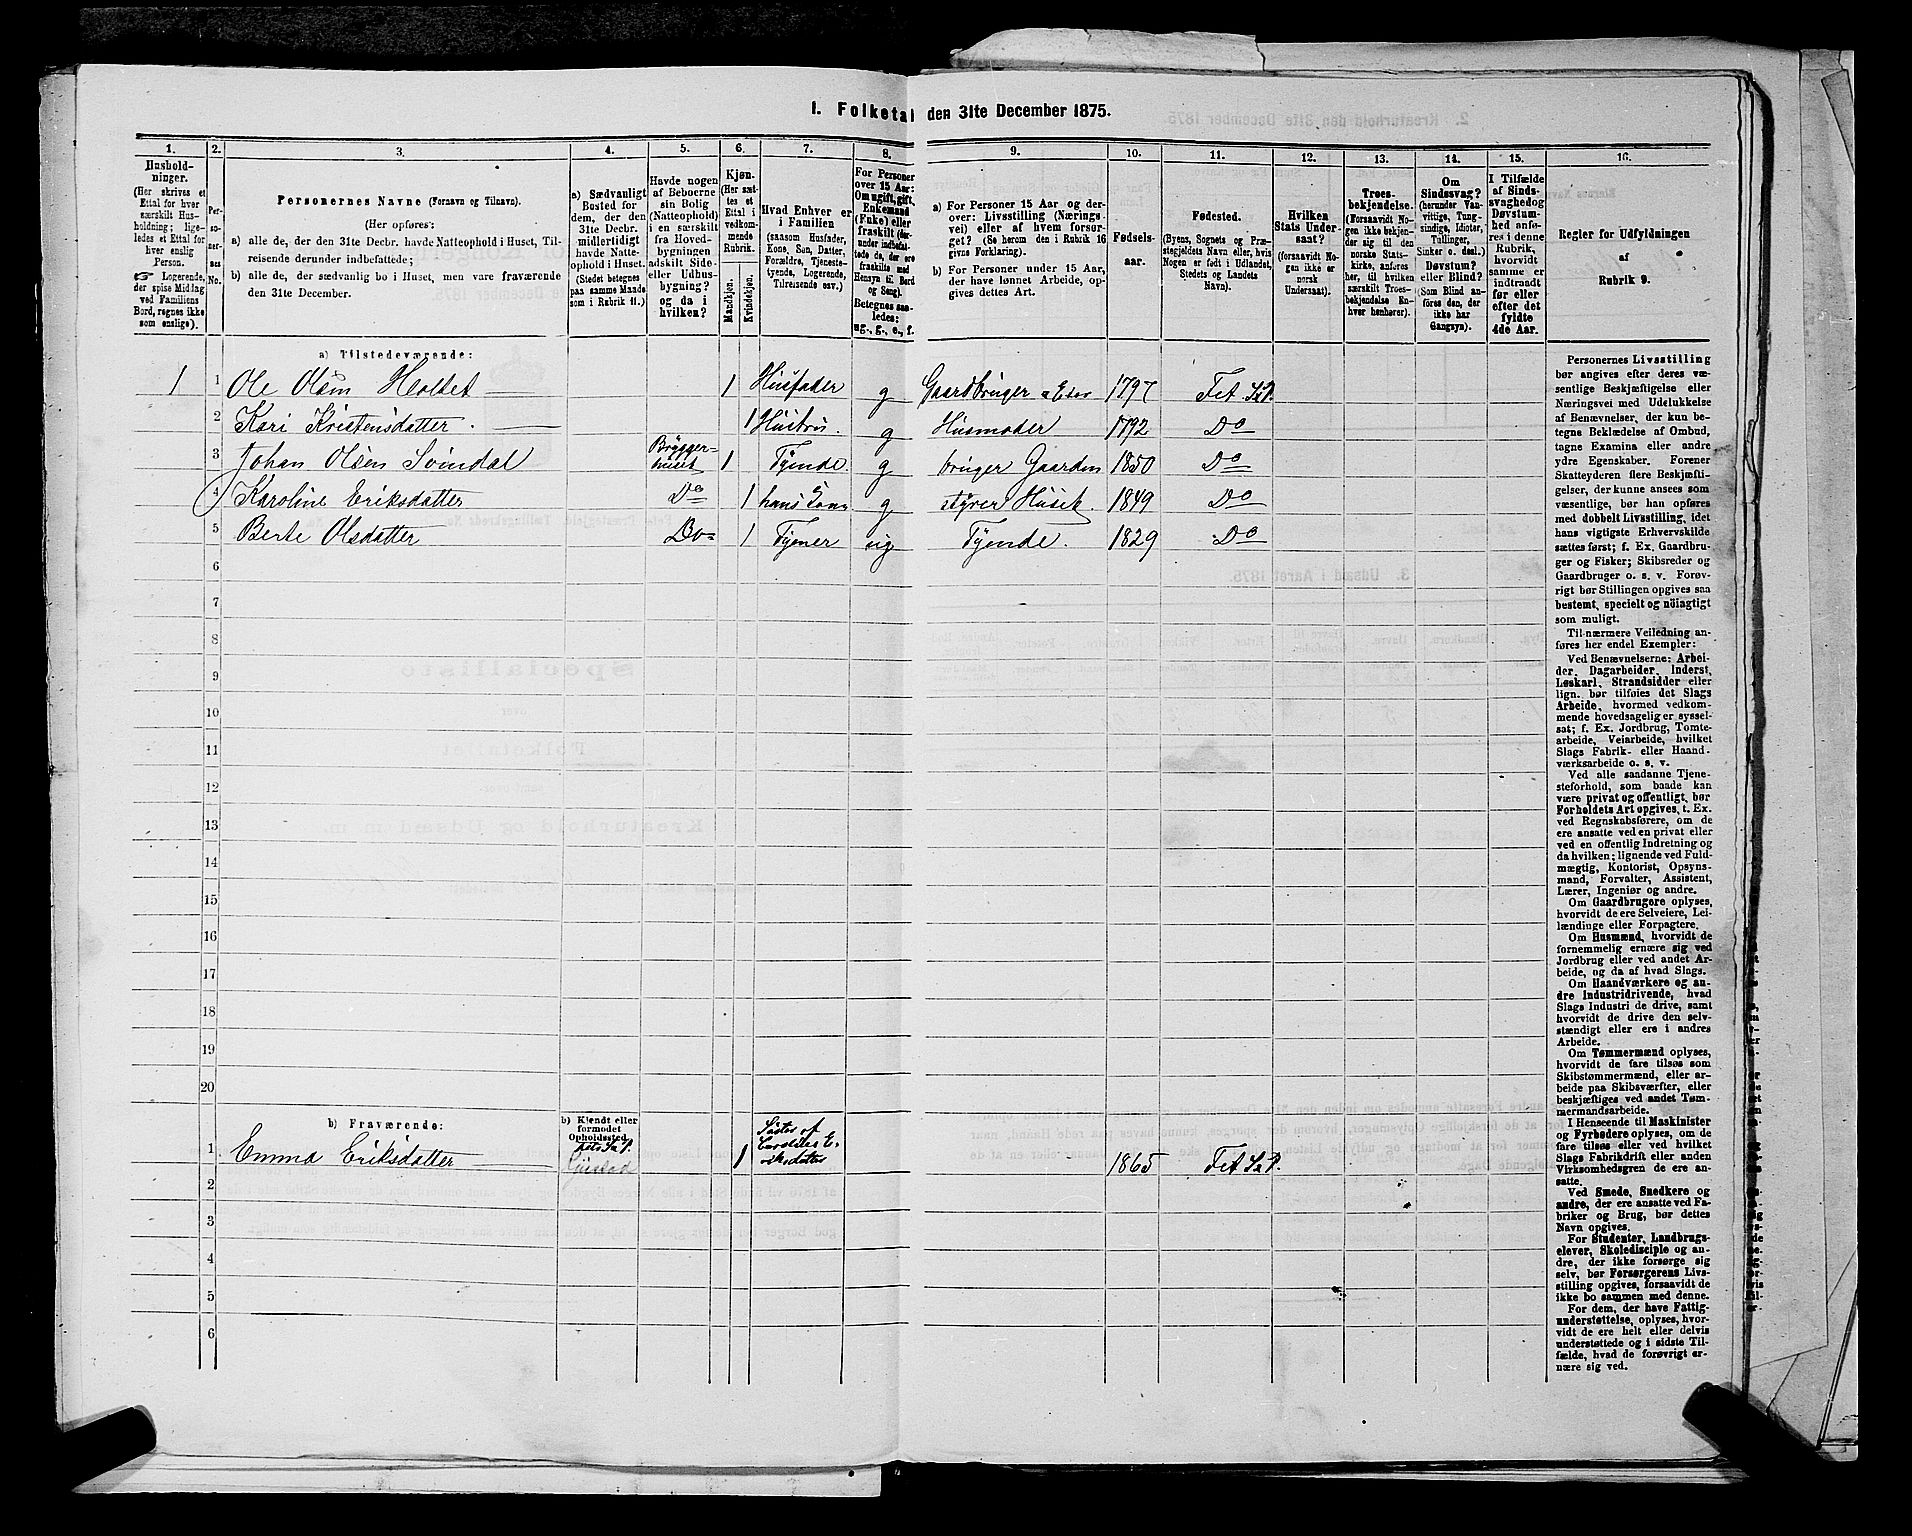 1. Folketal den 31te December 1875.
1.
Hushold-
ninger.
(Her skrives et
Ettal for hver
særskilt Hus-
holdning; lige-
ledes et Ettal for
hver enslig
Person.
☞ Logerende,
der spise Middag
ved Familiens
Bord, regnes ikke
som enslige).
2.
Per-
so-
ner-
nes
No.
3.
Personernes Navne (Fornavn og Tilnavn).
(Her opføres:
a) alle de, der den 31te Decbr. havde Natteophold i Huset, Til-
reisende derunder indbefattede;
b) alle de, der sædvanlig bo i Huset, men vare fraværende
den 31te December.
4.
a) Sædvanligt
Bosted for
dem, der den
31te Decbr.
midlertidigt
havde Natte-
ophold i Huset.
(Stedet betegnes
paa samme Maade
som i Rubrik 11.)
5.
Havde nogen
af Beboerne
sin Bolig
(Natteophold)
i en særskilt
fra Hoved-
bygningen
adskilt Side-
eller Udhus-
bygning?
og da i
hvilken?
6.
Kjøn.
(Her sæt-
tes et
Ettal i
vedkom-
mende
Rubrik.
Mandkjøn.
Kvindekjøn.
7.
Hvad Enhver er
i Familien
(saasom Husfader,
Kone, Søn, Datter,
Forældre, Tjeneste-
tyende, Logerende,
Tilreisende osv.)
8.
For Personer
over 15 Aar:
Om ugift, gift,
Enkemand
(Enke) eller
fraskilt (der-
under indbefat-
tede de, der ere
fraskilte med
Hensyn til Bord
og Seng).
Betegnes saa-
ledes:
ug., g., e., f.
9.
a) For Personer 15 Aar og der-
over: Livsstilling (Nærings-
vei) eller af hvem forsør-
get? (Se herom den i Rubrik 16
givne Forklaring).
b) For Personer under 15 Aar,
der have lønnet Arbeide, op-
gives dettes Art.
10.
Fødsels-
aar.
11.
Fødested.
(Byens, Sognets og Præ-
stegjeldets Navn eller, hvis
Nogen er født i Udlandet,
Stedets og Landets
Navn).
12.
Hvilken
Stats Under-
saat?
(forsaavidt No-
gen ikke er
norsk
Undersaat).
13.
Troes-
bekjendelse.
(Forsaavidt No-
gen ikke bekjen-
der sig til den
norske Stats-
kirke, anføres
her, til hvilken
særskilt Troes-
bekjendelse En-
hver henhører).
14.
Om
Sindssvag?
(herunder Van-
vittige, Tung-
sindige, Idioter,
Tullinger,
Sinker o. desl.).
Døvstum?
eller Blind?
(Som Blind an-
føres den, der
ikke har
Gangsyn).
15.
I Tilfælde
af Sinds-
svaghed og
Døvstum-
hed anfø-
res i denne
Rubrik,
hvorvidt
samme er
indtraadt
før eller
efter det
fyldte
4de Aar.
16.
Regler for Udfyldningen
af
Rubrik 9.
a) Tilstedeværende:
1 1 Ole Olsen Holtet 1 Husfader g Gaardbruger 1797 Fet S&P
2 Kari Kristensdatter 1 Hustru. g Husmoder 1792 Do
3 Johan Olsen Svindal Bryggerhuset 1 Tyende. g bruger Gaarden 1850 Do
4 Karoline Eriksdatter Do 1 hans Kone g styrer Huset. 1849 Do
5 Berte Olsdatter Do 1 Tjener ug Tyende. 1829 Do
6
7
8
9
10
11
12
13
14
15
16
17
18
19
20
b) Fraværende:
b) Kjendt eller
formodet
Opholdssted.
1 Emma Eriksdatter Fets S&P. 1 Søster af Caroline Eriksdatter 1865 Fet S&P.
2
3
4
5
6
Personernes Livsstilling
bør angives efter deres væ-
sentlige Beskjæftigelse eller
Næringsvei med Udelukkelse
af Benævnelser, der kun be-
tegne Beklædelse af Ombud,
tagne Examina eller andre
ydre Egenskaber. Forener
Skatteyderen flere Beskjæfti-
gelser, der kunne ansees som
væsentlige, bør han opføres
med dobbelt Livsstilling, idet
hans vigtigste Erhvervskilde
sættes først; f. Ex. Gaardbru-
ger og Fisker; Skibsreder og
Gaardbruger o. s. v. Forøv-
rigt bør Stillingen opgives saa
bestemt, specielt og nøiagtigt
som muligt.
Til nærmere Veiledning an-
føres her endel Exempler:
Ved Benævnelserne: Arbei-
der, Dagarbeider, Inderst,
Løskarl, Strandsidder eller
lign. bør tilføies det Slags
Arbeide, hvormed vedkom-
mende hovedsagelig er syssel-
sat; f. Ex. Jordbrug, Tomte-
arbeide, Veiarbeide, hvilket
Slags Fabrik- eller Haand-
værksarbeide o. s. v.
Ved alle saadanne Tjene-
steforhold, som baade kan
være privat og offentligt, bør
Forholdets Art opgives, t. Ex.
ved Regnskabsførere, om de
ere ansatte ved en privat eller
ved en offentlig Indretning og
da hvilken; lignende ved Fuld-
mægtig, Kontorist, Opsyns-
mand, Forvalter, Assistent,
Lærer, Ingeniør og andre.
Om Gaardbrugere oplyses,
hvorvidt de ere Selveiere, Lei-
lændinge eller Forpagtere.
Om Husmænd, hvorvidt de
fornemmelig ernære sig ved
Jordbrug eller ved andet Ar-
beide, og da af hvad Slags.
Om Haandværkere og an-
dre Industridrivende, hvad
Slags Industri de drive, samt
hvorvidt de drive den selv-
stændigt eller ere i andres
Arbeide.
Om Tømmermænd oplyses,
hvorvidt de fare tilsøs som
Skibstømmermænd, eller ar-
beide paa Skibsværfter, eller
beskjæftiges ved andet Tøm-
mermandsarbeide.
I Henseende til Maskinister
og Fyrbødere oplyses, om de
fare tilsøs eller ved hvilket
Slags Fabrikdrift eller anden
Virksomhedsgren de ere an-
satte.
Ved Smede, Snedkere og
andre, der ere ansatte ved Fa-
briker og Brug, bør dettes
Navn opgives.
For Studenter, Landbrugs-
elever, Skoledisciple og an-
dre, der ikke forsørge sig
selv, bør Forsørgerens Livs-
stilling opgives, forsaavidt de
ikke bo sammen med denne.
For dem, der have Fattig-
understøttelse, oplyses, hvor-
vidt de ere helt eller delvis
understøttede og i sidste Til-
fælde, hvad de forøvrigt er-
nære sig ved.